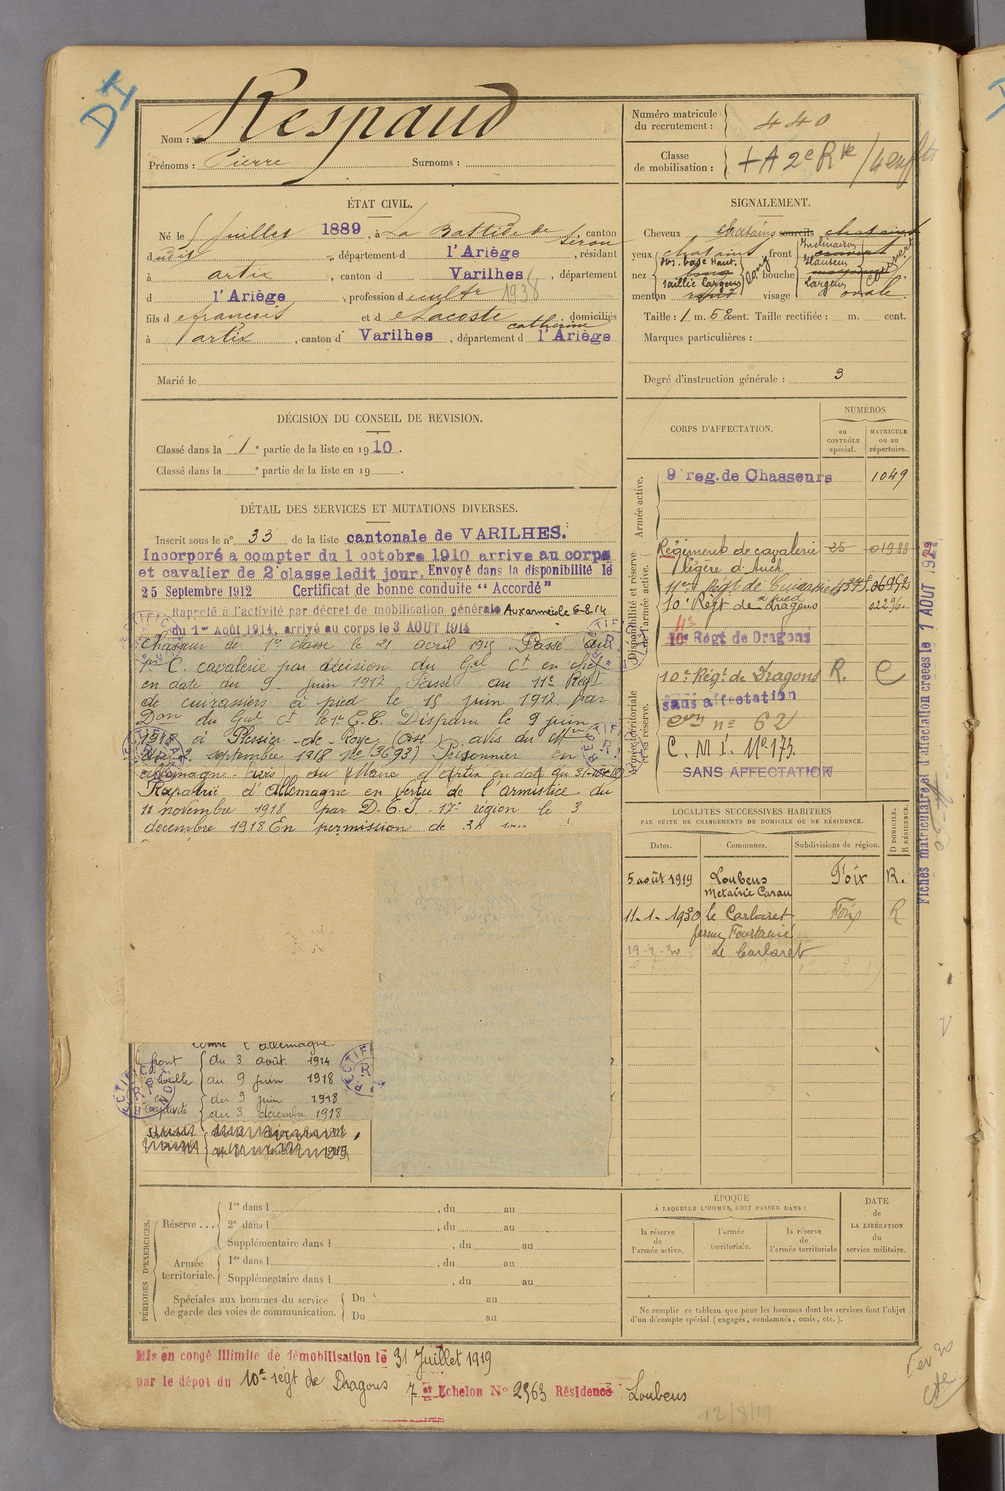 DI
Nom : Respaud
Prénoms : Pierre Surnoms :
Numéro matricule
du recrutement : 440
Classe
de mobilisation :
ÉTAT CIVIL.
Né le 5 juillet 1889, à La Bastide de Sérou canton
dudit, département d l'Ariège, résidant
à artix, canton d Varilhes, département
d l'Ariège, profession de cultr 1938
fils de francois et de Lacoste catherine, domiciliés
à artix, canton d Varilhes, département d l'Ariège
Marié le
SIGNALEMENT.
Cheveux chatains sourcils chatains
yeux chatains front
nez bouche
menton visage ovale.
Taille : 1 m. 62 cent. Taille rectifiée : m. cent.
Marques particulières :
Degré d'instruction générale : 3
DÉCISION DU CONSEIL DE REVISION.
Classé dans la 1e partie de la liste en 1910.
Classé dans la e partie de la liste en 19 .
DÉTAIL DES SERVICES ET MUTATIONS DIVERSES.
Inscrit sous le n° 33 de la liste cantonale de VARILHES.
Incorporé a compter du 1 octobre 1910 arrive au corps
et cavalier de 2e classe ledit jour. Envoyé dans la disponibilité le
25 Septembre 1912 Certificat de bonne conduite "Accordé"
Rappelé à l'activité par décret de mobilisation générale Aux armées le 6-8-14
du 1er Août 1914, arrivé au corps le 3 AOUT 1914
Chasseur de 1e classe le 21 avril 1915 Passé au
1er C. cavalerie par décision du Gal Ct en chef
en date du 9 juin 1917 Passé au 11e Régt
de cuirassiers à pied le 15 juin 1917 par
Don du Gal Ct le 1e C.C. Disparu le 9 juin
1918 à Plessier-de-Roye (Oise) avis du Mtre
septembre 1918 Prisonnier en
Allemagne avis du Maire d'Artix
Rapatrié d'Allemagne en vertu de l'armistice du
11 novembre 1918 par D.E.I. 17e région le 3
décembre 1918 En permission de 30
contre l'allemagne
front du 3 août 1914
au 9 juin 1918
en captivité du 9 juin 1918
au 3 décembre 1918
CORPS D'AFFECTATION.
NUMÉROS
au CONTRÔLE spécial.
MATRICULE ou au répertoire.
Armée active.
9e reg. de Chasseurs 1049
Disponibilité et réserve de l'armée active.
Régiment de cavalerie 25
légère d'Auch
10e Régt de Dragons
10e Régt de Dragons
Armée territoriale et sa réserve.
10e Régt de Dragons R. C
sans affectation
n° 62
C. M I. No 173.
SANS AFFECTATION
Fiches matriculaire et d'affectation créées le 7 AOUT 1929
LOCALITÉS SUCCESSIVES HABITÉES
PAR SUITE DE CHANGEMENTS DE DOMICILE OU DE RÉSIDENCE.
D DOMICILE. R RÉSIDENCE.
Dates. Communes. Subdivisions de région.
5 août 1919 Loubens Foix R.
Métairie Carau
11-1-1930 le Carlaret Foix R
ferme
le Carlaret
PÉRIODES D'EXERCICES.
Réserve ... 1re dans l , du au
2e dans l , du au
Supplémentaire dans l , du au
Armée territoriale. 1re dans l , du au
Supplémentaire dans l , du au
Spéciales aux hommes du service
de garde des voies de communication.
Du au
Du au
ÉPOQUE
A LAQUELLE L'HOMME DOIT PASSER DANS :
la réserve de l'armée active.
l'armée territoriale.
la réserve de l'armée territoriale
DATE
de
LA LIBÉRATION
du
service militaire.
Ne remplir ce tableau que pour les hommes dont les services font l'objet
d'un décompte spécial (engagés, condamnés, omis, etc.).
Mis en congé illimité de démobilisation le 31 Juillet 1919
par le dépot du 10e régt de Dragons 7e Echelon N° 2563 Résidence Loubens